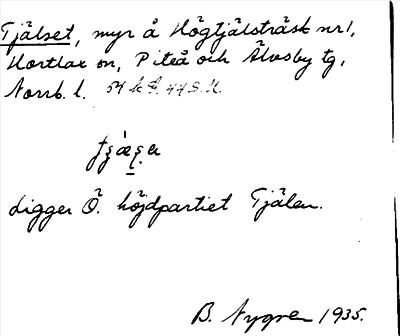 Tjälset, myr å Högtjälsträsk nr 1,
Hortlax sn, Piteå och Älvsby tg,
Norrb. l. 54 k d. 44 S. N.
Ligger Ö. höjdpartiet Tjälen.
B. Nygren 1935.